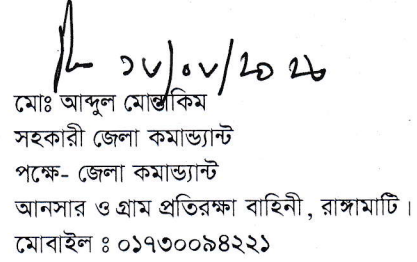 ১৮/০৮/২০২৬
মোঃ আব্দুল মোস্তাকিম
সহকারী জেলা কমান্ড্যান্ট
পক্ষে- জেলা কমান্ড্যান্ট
আনসার ও গ্রাম প্রতিরক্ষা বাহিনী, রাঙ্গামাটি।
মোবাইল ঃ ০১৭৩০০৯৪২২১